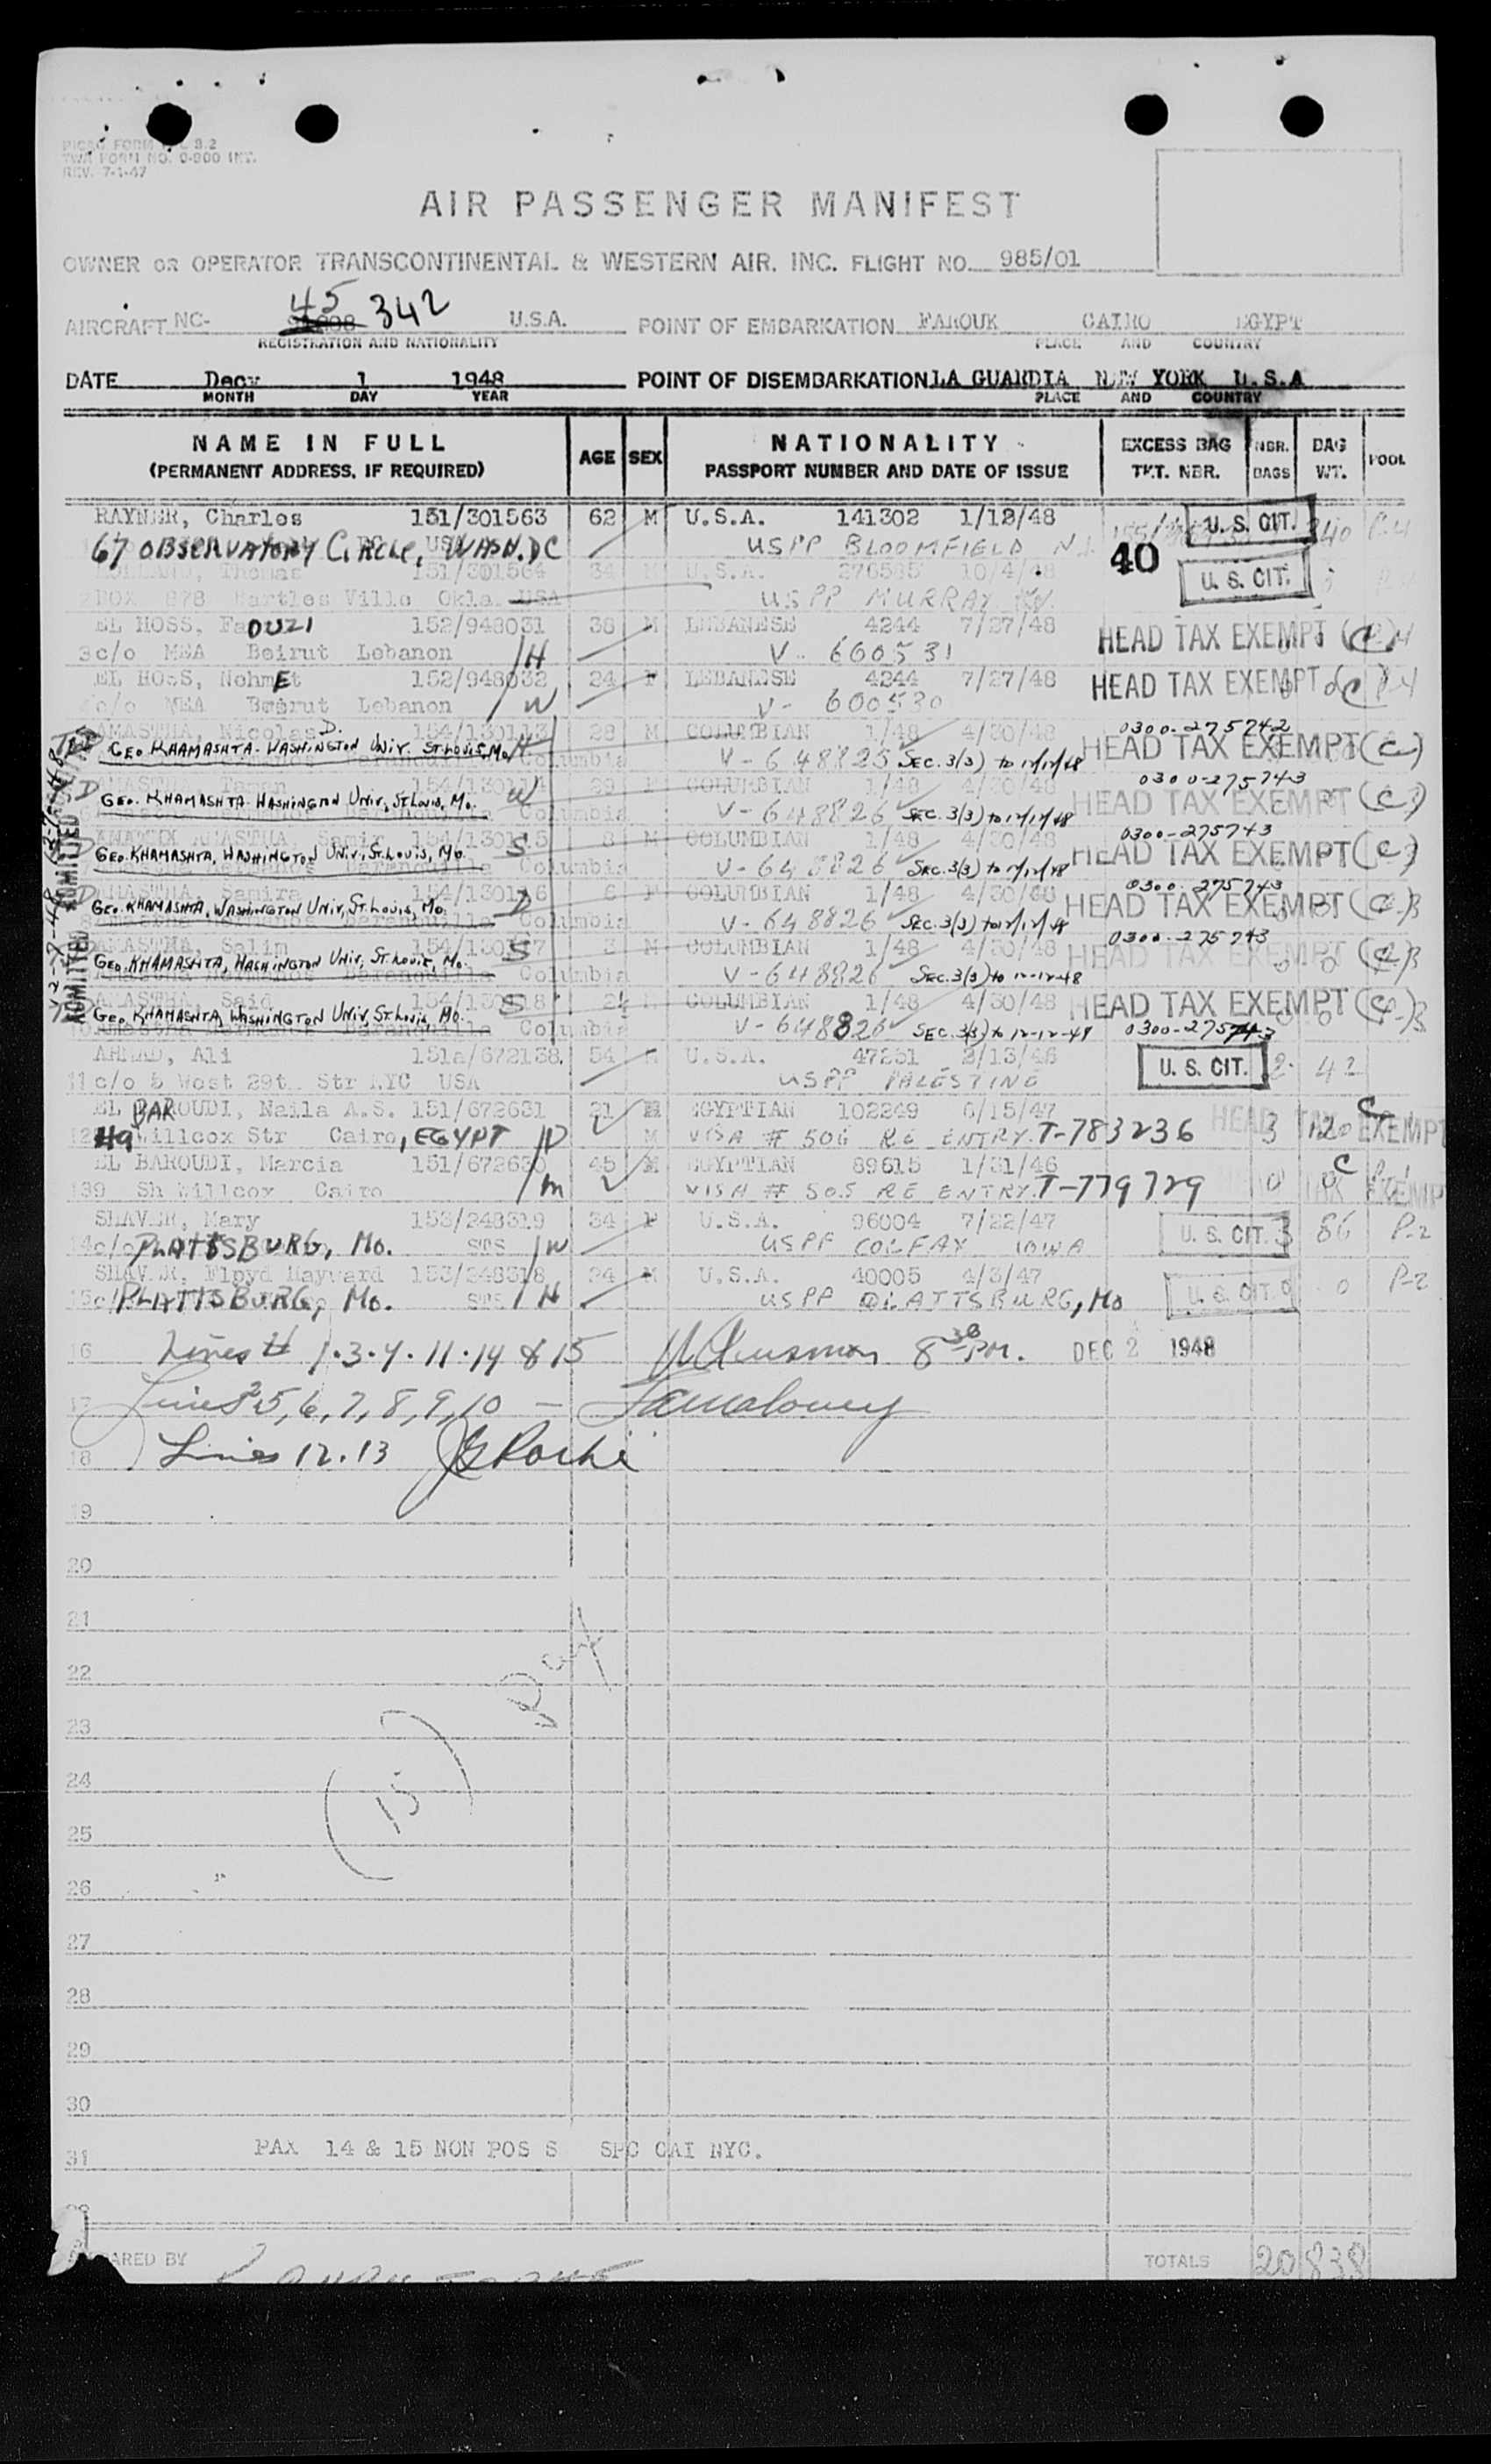 TWA FORM NO. 0-800 INT.
REV. 7-1-47
AIR PASSENGER MANIFEST
OWNER OR OPERATOR TRANSCONTINENTAL & WESTERN AIR. INC. FLIGHT NO. 985/01
AIRCRAFT NC- 45 342 U.S.A. POINT OF EMBARKATION FAROUK CAIRO EGYPT
REGISTRATION AND NATIONALITY PLACE AND COUNTRY
DATE Decy 1 1948 POINT OF DISEMBARKATION LA GUARDIA NEW YORK U.S.A
MONTH DAY YEAR PLACE AND COUNTRY
NAME IN FULL AGE SEX NATIONALITY EXCESS BAG NBR. BAG POOL
(PERMANENT ADDRESS, IF REQUIRED) PASSPORT NUMBER AND DATE OF ISSUE TKT. NBR. BAGS WT.
RAYNER, Charles 151/301563 62 M U.S.A. 141302 1/12/48 U.S. CIT. 240 P-4
67 OBSERVATORY CIRCLE, WASH. DC USPP BLOOMFIELD N.J. 40
Thomas 151/301564 34 M U.S.A. 276585 10/4/48 U.S. CIT.
2 BOX 878 Bartles Ville Okla. USA USPP MURRAY KY.
EL HOSS, FaOUZI 152/948031 38 M LEBANESE 4244 7/27/48 HEAD TAX EXEMPT (C)
3 c/o MEA Beirut Lebanon /H V- 600531
EL HOSS, NehmEt 152/948032 24 F LEBANESE 4244 7/27/48 HEAD TAX EXEMPT (C) P-4
c/o MEA Beirut Lebanon /W V- 600530
AMASTHA, Nicolas D. 154/130113 28 M COLUMBIAN 1/48 4/30/48 0300-275742
GEO. KHAMASHTA-WASHINGTON UNIV. ST. LOUIS, MO. H Columbia V-648825 SEC. 3(3) to 12/12/48 HEAD TAX EXEMPT (C)
AMASTHA, 154/13011 29 F COLUMBIAN 1/48 4/30/48 0300-275743
GEO. KHAMASHTA WASHINGTON UNIV, ST. LOUIS, MO. W Columbia V-648826 SEC. 3(3) to 12/12/48 HEAD TAX EXEMPT (C)
AMASTHA Samir 154/130115 8 M COLUMBIAN 1/48 4/30/48 0300-275743
GEO. KHAMASHTA, WASHINGTON UNIV., ST. LOUIS, MO. S Columbia V-648826 SEC. 3(3) to 12/12/48 HEAD TAX EXEMPT (C)
AMASTHA, Samira 154/130116 6 F COLUMBIAN 1/48 4/30/48 0300-275743
GEO. KHAMASHTA, WASHINGTON UNIV, ST. LOUIS, MO. D Columbia V-648826 SEC. 3(3) to 12/12/48 HEAD TAX EXEMPT (C)
AMASTHA, Salim 154/130117 3 M COLUMBIAN 1/48 4/30/48 0300-275743
GEO. KHAMASHTA, WASHINGTON UNIV, ST. LOUIS, MO. S Columbia V-648826 SEC. 3(3) to 12-12-48 HEAD TAX EXEMPT (C)
AMASTHA, Said 154/130118 2 M COLUMBIAN 1/48 4/30/48 HEAD TAX EXEMPT (C)
GEO. KHAMASHTA, WASHINGTON UNIV, ST. LOUIS, MO. S Columbia V-648826 SEC. 3(3) to 12-12-48 0300-275743
AHMAD, Ali 151a/672138 54 M U.S.A. 47251 2/13/46 U.S. CIT. 2 42
11 c/o 5 West 29t. Str NYC USA USPP PALESTINE
EL BAROUDI, Naila A.S. 151/672631 21 EGYPTIAN 102249 6/15/47
BAR
12 Willcox Str Cairo, EGYPT /D VISA # 506 RE ENTRY. T-783236 HEAD TAX EXEMPT C 3 120
EL BAROUDI, Marcia 151/672630 45 EGYPTIAN 89615 1/31/46
13 9 Sh Willcox Cairo /M VISA # 505 RE ENTRY. T-779729 HEAD TAX EXEMPT C 0 0
SHAVER, Mary 153/248319 34 F U.S.A. 96004 7/22/47 U.S. CIT. 3 86 P-2
14 c/o PLATTSBURG, MO. /W USPP COLFAX IOWA
SHAVER, Floyd Hayward 153/248318 24 M U.S.A. 40005 4/3/47 U.S. CIT. 0 0 P-2
15 c/ PLATTSBURG, MO. /H USPP PLATTSBURG, MO
16 Lines # 1.3.4.11.14 & 15 8 30 P.M. DEC 2 1948
17 Lines 2 5, 6, 7, 8, 9, 10 -
18 Lines 12.13
19
20
21
22
23
24
(15)
25
26
27
28
29
30
31 PAX 14 & 15 NON POS S SPC CAI NYC.
PARED BY TOTALS 20 838
ADMITTED